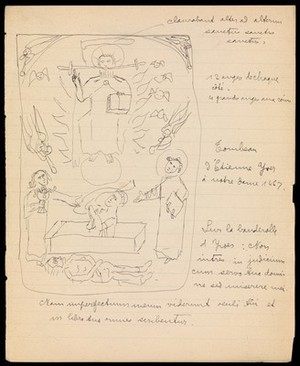 clamabant alter ad alterum
sanctus sanctus
sanctus.
13 anges de chaque
côté.
4 grands anges aux coins
Tombeau
d'Etienne Yver
à notre Dame 1467.
Sur la banderolle
d'Yver : Non
intres in judicium
cum servo tuo domi
ne sed miserere mei
Nam imperfectum meum viderunt oculi tui et
in libro tuo omnes scribentur.